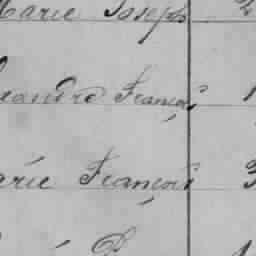 Marie Joseph 2
exandre François 1
arie François 3